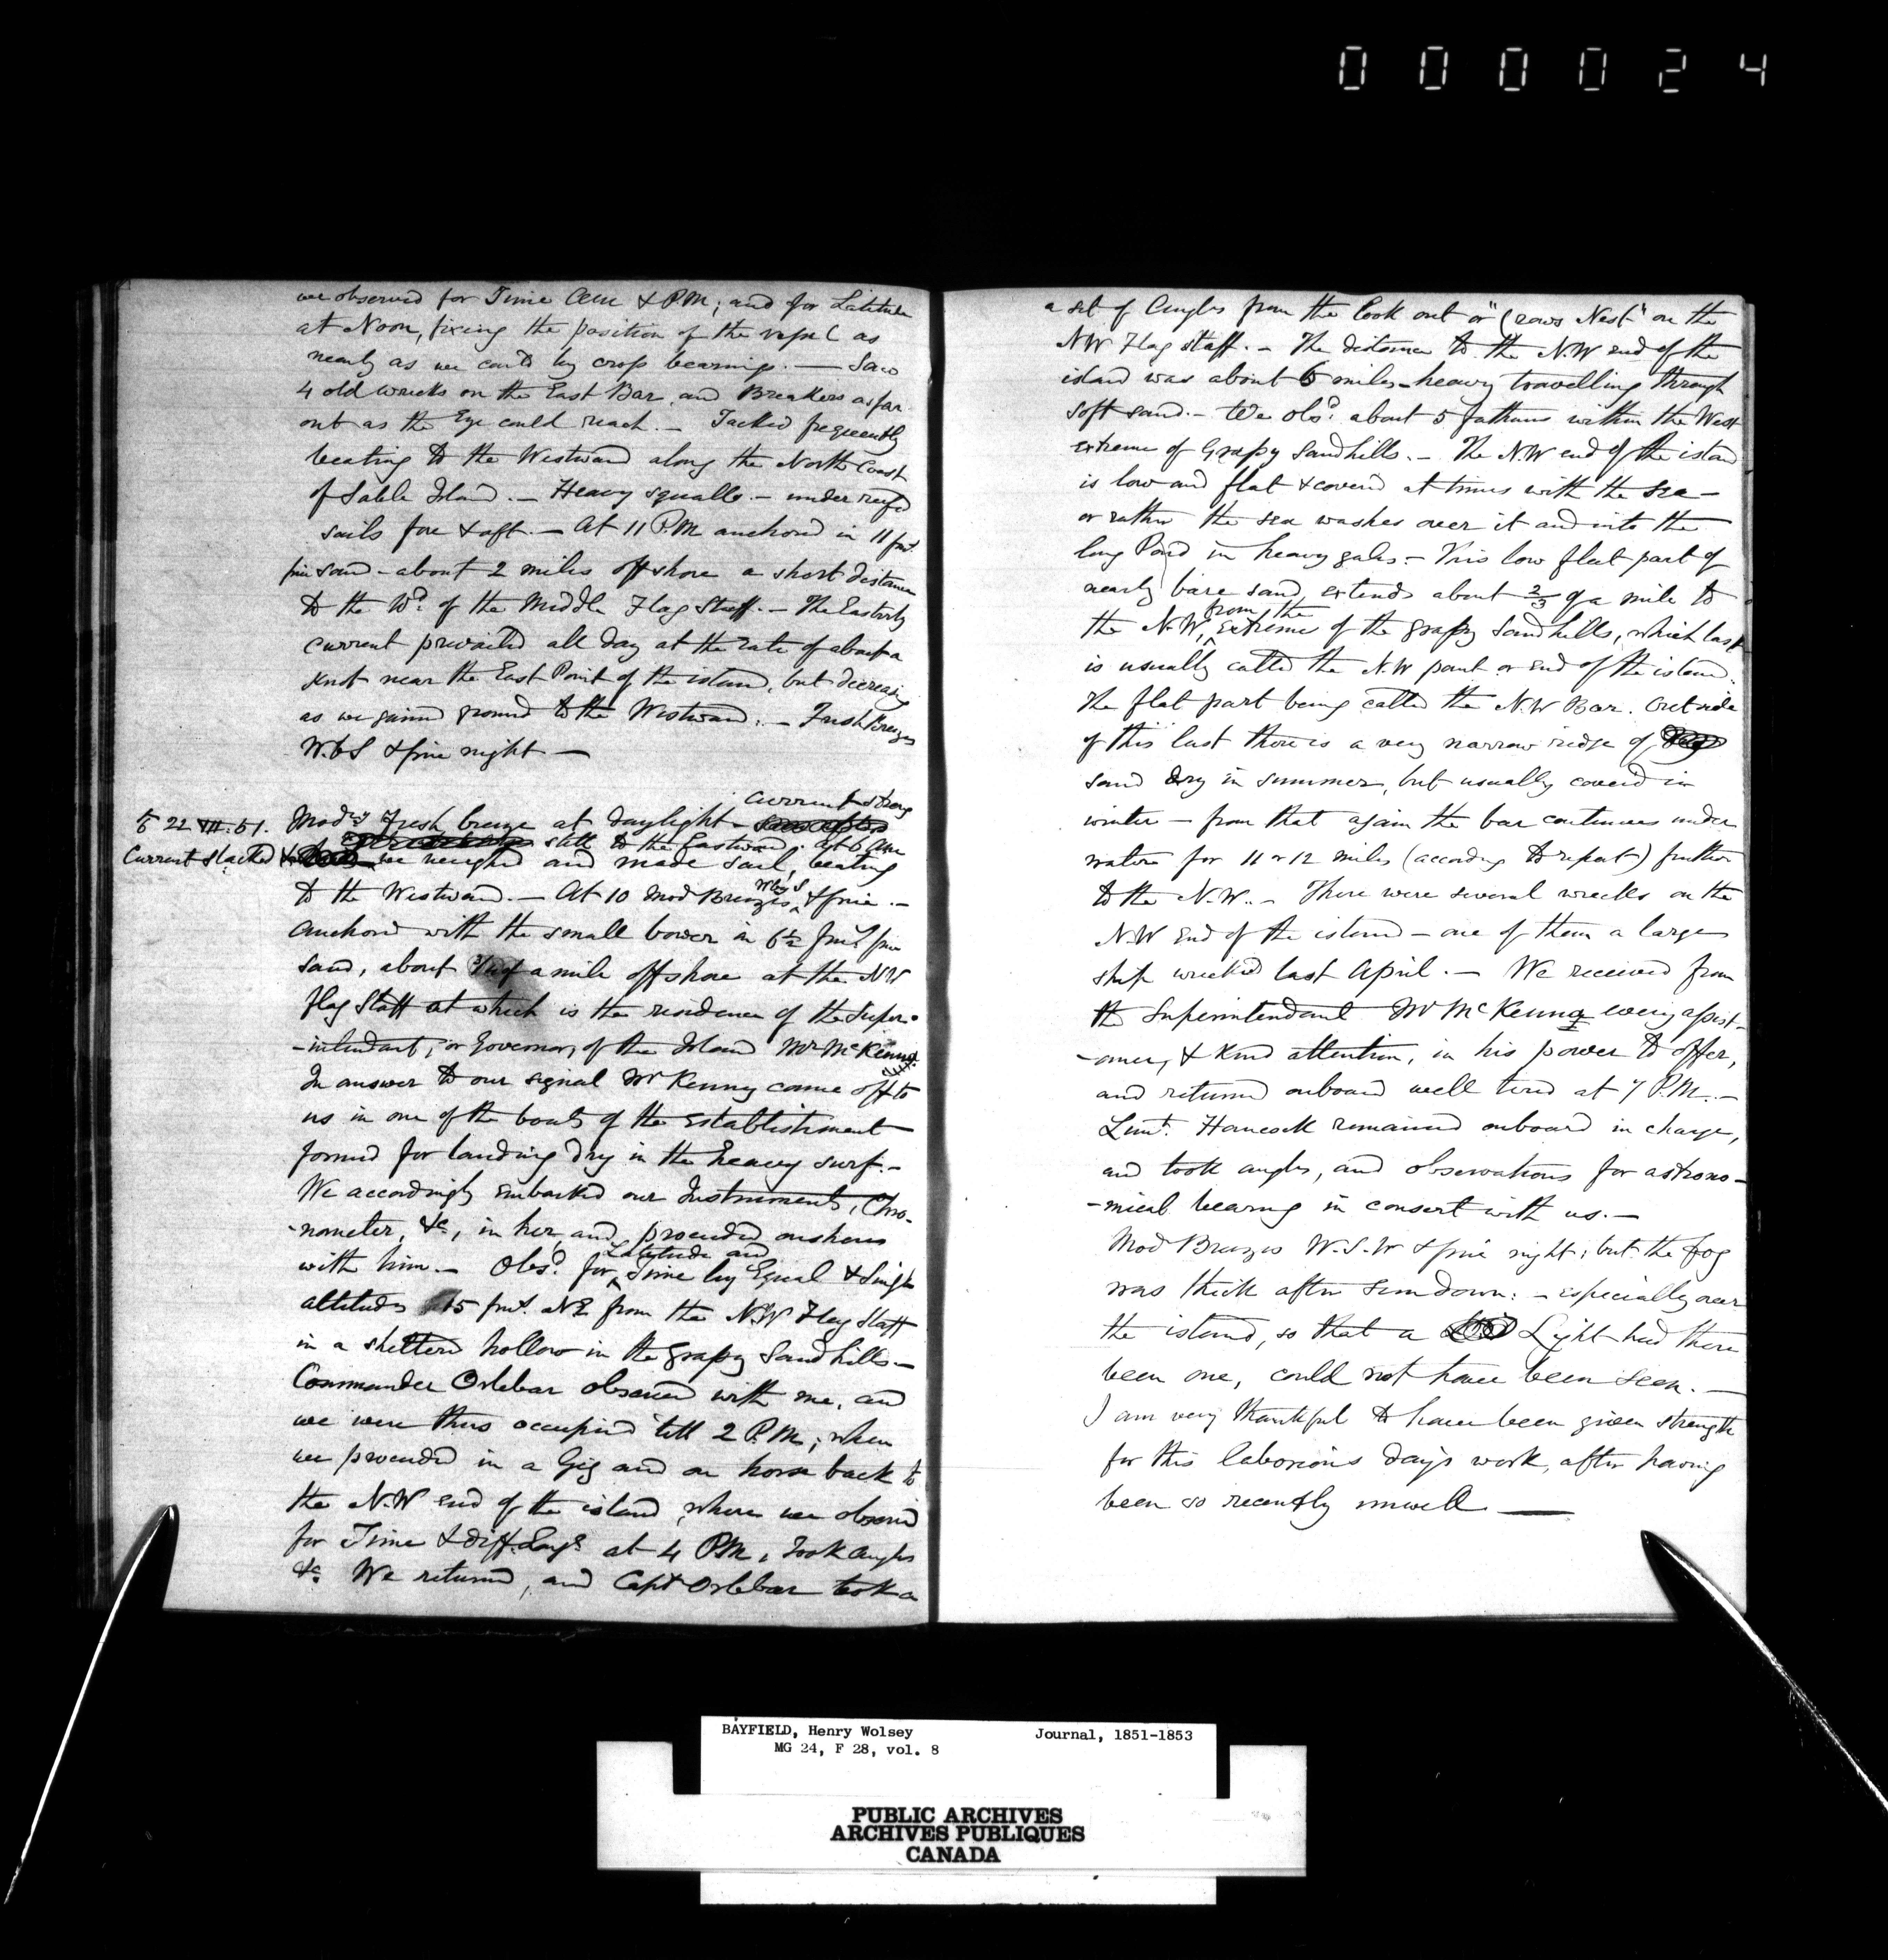 000024
we observed for Time AM & P.M; and for Latitude
at Noon, fixing the position of the vessel as
nearly as we could by cross bearings. — Saw
4 old wrecks on the East Bar, and Breakers as far
out as the Eye could reach. — Tacked frequently
beating to the Westward along the North Coast
of Sable Island. — Heavy squalls. — under reefed
sails fore & aft. — At 11 P.M anchored in 11 fms.
fine sand - about 2 miles off shore a short distance
to the Wd. of the Middle Flag Staff. — The Easterly
current prevailed all day at the rate of about a
knot near the East Point of the island, but decreasing
as we gained ground to the Westward. — Fresh Breezes
W.b S & fine night —
current strong
22 VII. 51. Mody Fresh breeze at daylight
still to the Eastward. At 6 AM
Current slacked & we weighed and made sail, beating
to the Westward. — At 10 Mod Breezes W by S & fine. —
Anchored with the small bower in 6½ fms fine
sand, about 3/4 of a mile off shore at the NW
Flag Staff at which is the residence of the Super-
-intendant, or Governor, of the Island Mr McKenna.
In answer to our signal Mr Kenny came off to
us in one of the boats of the establishment
formed for landing dry in the heavy surf. —
We accordingly embarked our Instruments, Chro-
-nometer, &c, in her, and proceeded onshore
with him. — Obsd. for Latitude and Time by Equal & Single
altitudes 15 fms. NE from the N.W Flag Staff
in a sheltered hollow in the grassy Sand hills. —
Commander Orlebar observed with me, and
we were thus occupied till 2 P.M; when
we proceeded in a Gig and on horse back to
the N.W end of the island, where we observed
for Time & diff. Longe. at 4 PM, took angles
&c. We returned, and Capt Orlebar took a
a set of Angles from the look out or "Crows Nest" on the
NW Flag staff. — The distance to the N.W end of the
island was about 6 miles - heavy travelling through
soft sand. — We obsd. about 5 fathoms within the West
extreme of Grassy Sandhills. — The N.W end of the island
is low and flat & covered at times with the sea —
or rather the sea washes over it and into the
long Pond in heavy gales. — This low flat part of
nearly bare sand, extends about 2/3 of a mile to
the N.W, from the extreme of the grassy Sand hills, which last
is usually called the N.W point or end of the island.
The flat part being called the N.W Bar. Outside
of this last there is a very narrow ridge of
sand dry in summer, but usually covered in
winter — from that again the bar continues under
water for 11 or 12 miles (according to report) further
to the N.W. — There were several wrecks on the
N.W end of the island — one of them a large
ship wrecked last April. — We received from
the Superintendant Mr McKenna every assist-
-ance, & kind attention, in his power to offer,
and returned onboard well tired at 7 P.M. —
Lieut. Hancock remained onboard in charge,
and took angles, and observations for astrono-
-mical bearing in consert with us. —
Mod Breezes W.S.W & fine night; but the fog
was thick after sundown: — especially over
the island, so that a Light had there
been one, could not have been seen. —
I am very thankful to have been given strength
for this laborious days work, after having
been so recently unwell —
BAYFIELD, Henry Wolsey Journal, 1851-1853
MG 24, F 28, vol. 8
PUBLIC ARCHIVES
ARCHIVES PUBLIQUES
CANADA